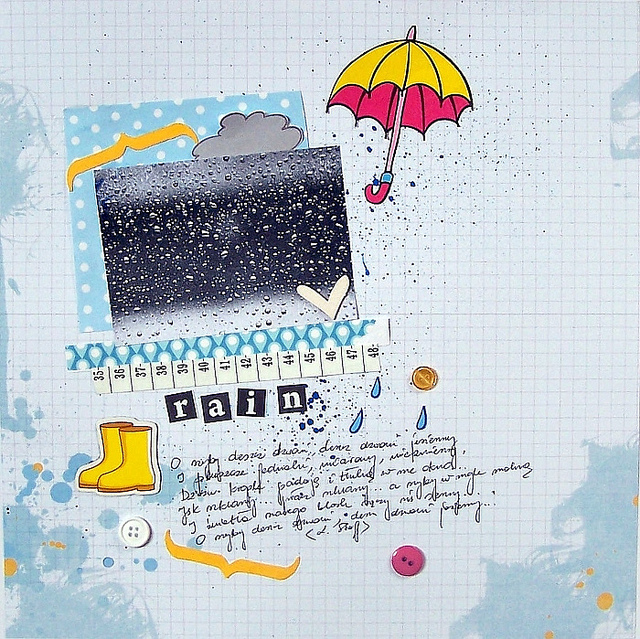 35 36 37 38 39 40 41 42 43 44 45 46 47 48
rain
O szyby deszcz dzwoni, deszcz dzwoni jesienny
I pluszcze jednaki, miarowy, niezmienny,
Dżdżu krople padają i tłuką w me okno,
Jęk szklany... płacz szklany... a szyby w mgle mokną
I światła szarego blask sączy się senny...
O szyby deszcz dzwoni, deszcz dzwoni jesienny..."
(L. Staff)